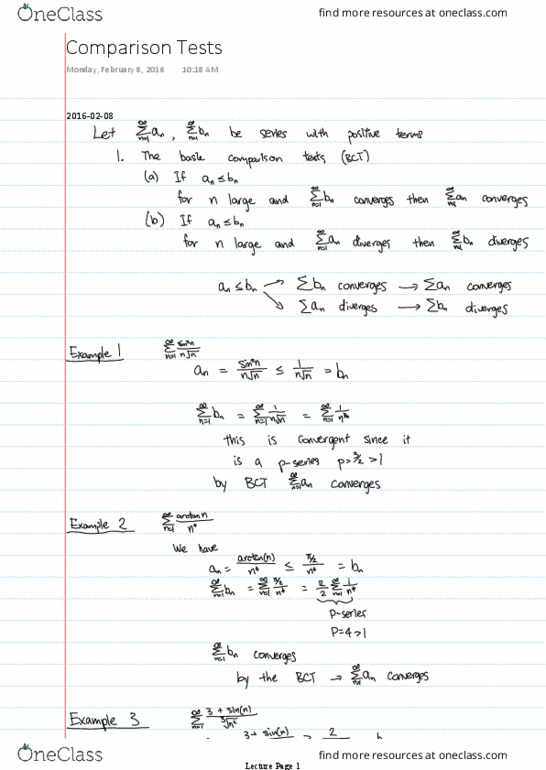 OneClass find more resources at oneclass.com
Comparison Tests
Monday, February 8, 2016 10:18 AM
2016-02-08
Let ∑_{n=1}^∞ aₙ, ∑_{n=1}^∞ bₙ be series with positive terms
1. The basic comparison tests (BCT)
(a) If aₙ ≤ bₙ
for n large and ∑_{n=1}^∞ bₙ converges then ∑_{n=1}^∞ aₙ converges
(b) If aₙ ≤ bₙ
for n large and ∑_{n=1}^∞ aₙ diverges then ∑_{n=1}^∞ bₙ diverges
aₙ ≤ bₙ → ∑bₙ converges → ∑aₙ converges
↘ ∑aₙ diverges → ∑bₙ diverges
Example 1 ∑_{n=1}^∞ sin²n/(n√n)
aₙ = sin²n/(n√n) ≤ 1/(n√n) = bₙ
∑_{n=1}^∞ bₙ = ∑_{n=1}^∞ 1/(n√n) = ∑_{n=1}^∞ 1/n^{3/2}
this is convergent since it
is a p-series p=3/2 >1
by BCT ∑_{n=1}^∞ aₙ converges
Example 2 ∑_{n=1}^∞ arctan n/n⁴
We have
aₙ = arctan(n)/n⁴ ≤ (π/2)/n⁴ = bₙ
∑_{n=1}^∞ bₙ = ∑_{n=1}^∞ (π/2)/n⁴ = π/2 ∑_{n=1}^∞ 1/n⁴
p-series
P=4>1
∑_{n=1}^∞ bₙ converges
by the BCT → ∑_{n=1}^∞ aₙ converges
Example 3 ∑_{n=1}^∞ (3 + sin(n))/
3+ sin(n) > 2
OneClass find more resources at oneclass.com
Lecture Page 1